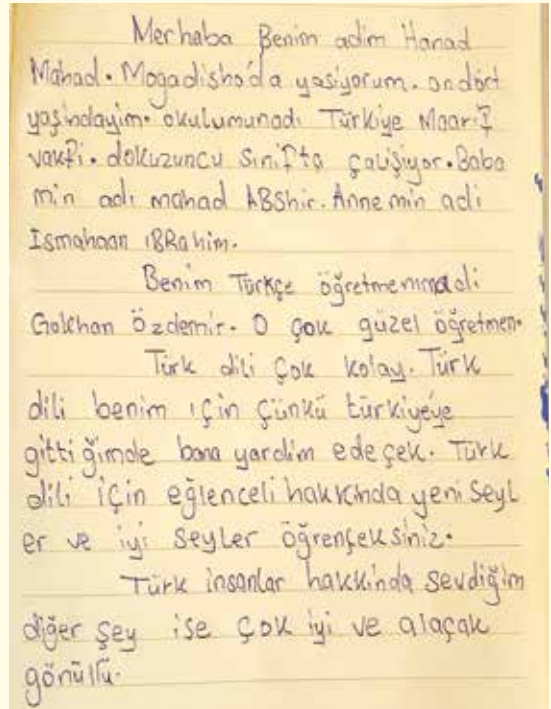 Merhaba Benim adim Hanad
Mahad. Mogadisho'da yasiyorum. ondört
yaşindayim. okulumunadı Türkiye Maarif
vakfi. dokuzuncu sınıfta çalişiyor. Baba
min adı mahad ABShir. Annemin adi
Ismahaan IBRahim.
Benim Türkçe öğretmenimadi
Gokhan Özdemir. O çok güzel öğretmen.
Türk dili çok kolay. Türk
dili benim için çünkü türkiyeye
gittiğimde bana yardim edeçek. Türk
dili için eğlenceli hakkında yeni Seyl
er ve iyi Seyler öğrençeksiniz.
Türk insanlar hakkinda sevdiğim
diğer şey ise çok iyi ve alaçak
gönüllü.